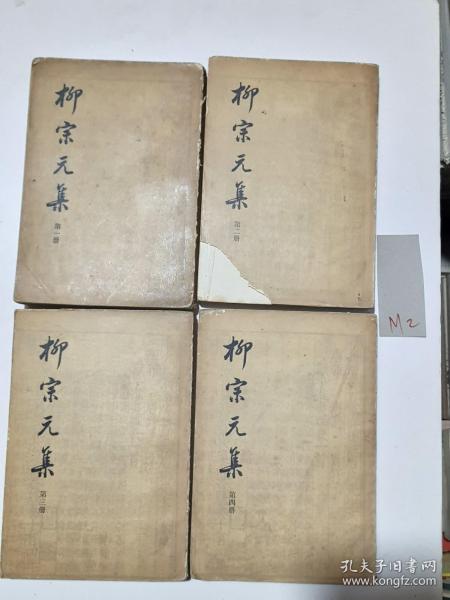 柳宗元集
第一册
柳宗元集
第二册
M2
柳宗元集
第三册
柳宗元集
第四册
孔夫子旧书网
www.kongfz.com